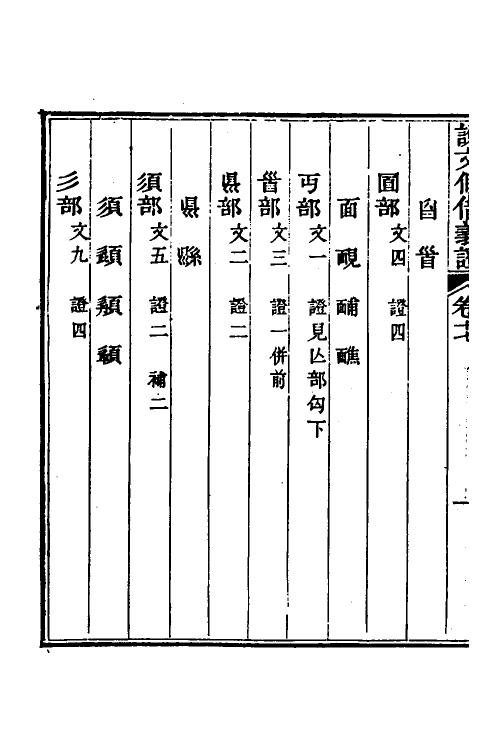 說文假借義證 卷十七 一
𦣻 𩠐
面部 文四 證四
面 靦 䩉 醮
丏部 文一 證見亾部匃下
𩠐部 文三 證一併前
𥄉部 文二 證二
𥄉 縣
須部 文五 證二 補二
須 頿 䫇 顉
彡部 文九 證四